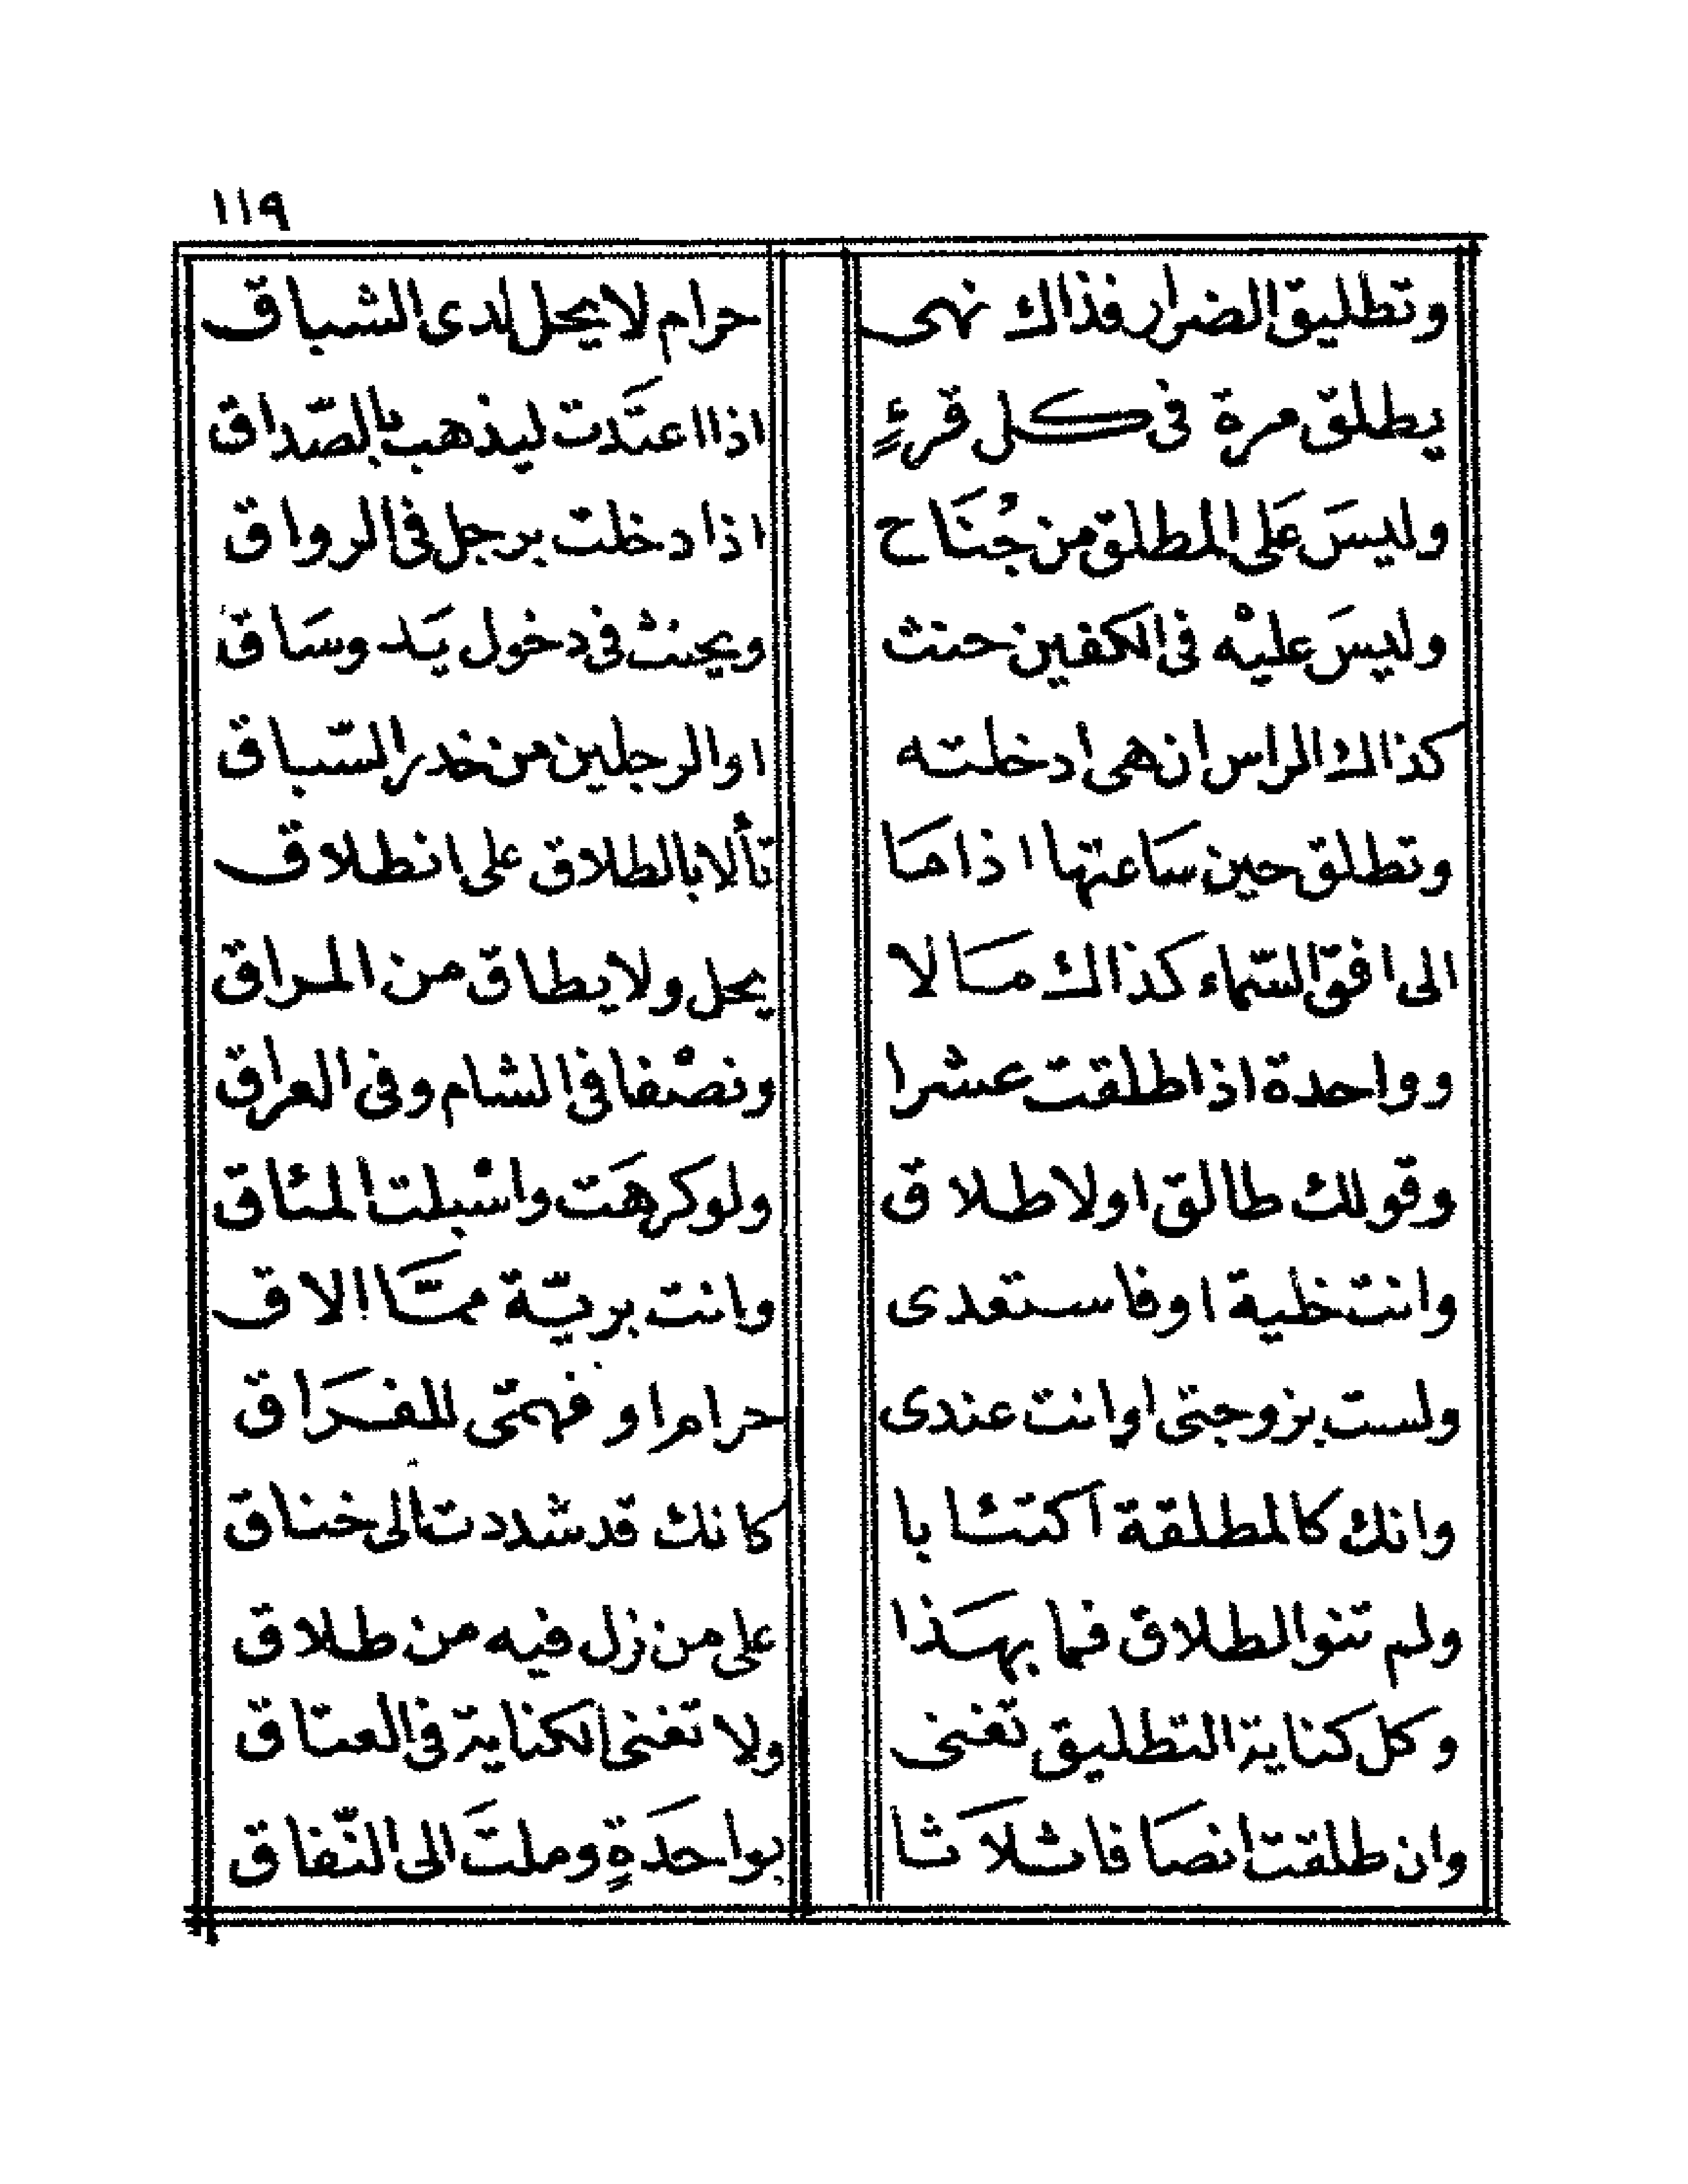 ١١٩
وتطليق الضرار فذاك نهى حرام لا يحل لدى الشباق
يطلق مرة فى كل قرءٍ اذا اعتَّدت ليذهب بالصّداق
وليسَ عَلى المطلق من جُنَاح اذا دخلت برجل فى الرواق
وليسَ عليْه فى الكفين حنث ويحنث فى دخول يَد وسَاق
كذاك الراس ان هى ادخلته او الرجلين من خدر السّباق
وتطلق حين سَاعتها اذا مَا تألا بالطلاق على انطلاق
الى افق السّماء كذاك مَا لا يحل ولا يطاق من المراق
وواحدة اذا طلقت عشرا ونصْفا فى الشام وفى العراق
وقولك طالق اولا طلاق ولو كرهَت واسْبلت المئاق
وانت خلية او فاستعدى وانت بريّة ممَّا الاق
ولست بزوجتى او انت عندى حراما او فهمّى للفرَاق
وانك كالمطلقة اكتئابا كانك قد شددت الى خناق
ولم تنو الطلاق فما بهَذا على من زل فيه من طلاق
وكل كناية التطليق تغنى ولا تغنى الكناية فى العتاق
وان طلقت انصَافا ثلاَثا بواحَدةٍ وملتَ الى النّفاق